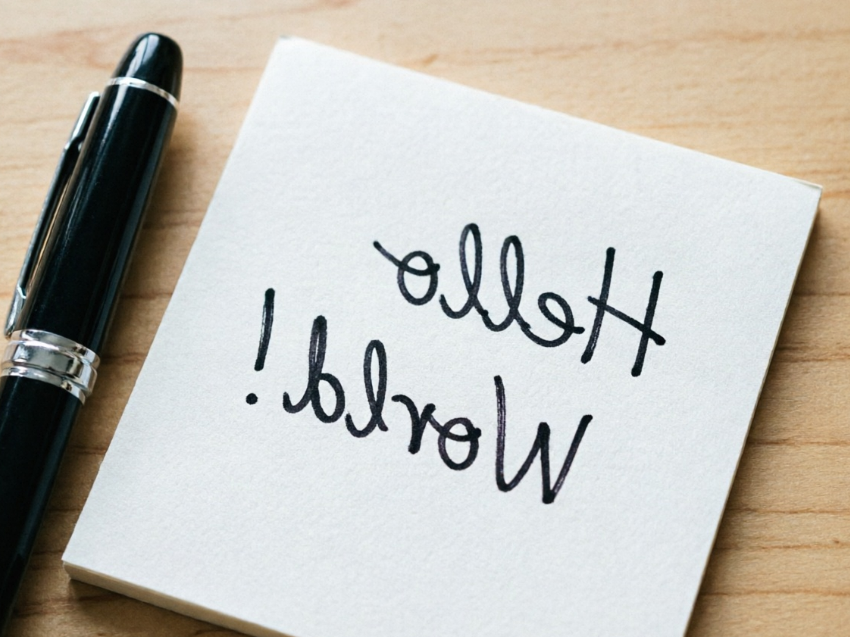 Hello
World!